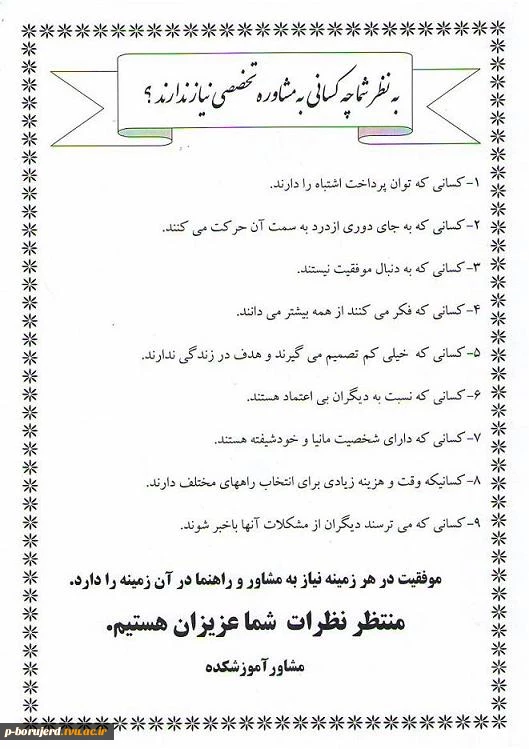 به نظر شما چه کسانی به مشاوره تخصصی نیاز ندارند ؟
۱-کسانی که توان پرداخت اشتباه را دارند.
۲-کسانی که به جای دوری ازدرد به سمت آن حرکت می کنند.
۳-کسانی که به دنبال موفقیت نیستند.
۴-کسانی که فکر می کنند از همه بیشتر می دانند.
۵-کسانی که خیلی کم تصمیم می گیرند و هدف در زندگی ندارند.
۶-کسانی که نسبت به دیگران بی اعتماد هستند.
۷-کسانی که دارای شخصیت مانیا و خودشیفته هستند.
۸-کسانیکه وقت و هزینه زیادی برای انتخاب راههای مختلف دارند.
۹-کسانی که می ترسند دیگران از مشکلات آنها باخبر شوند.
موفقیت در هر زمینه نیاز به مشاور و راهنما در آن زمینه را دارد.
منتظر نظرات شما عزیزان هستیم.
مشاور آموزشکده
p-borujerd.tvu.ac.ir